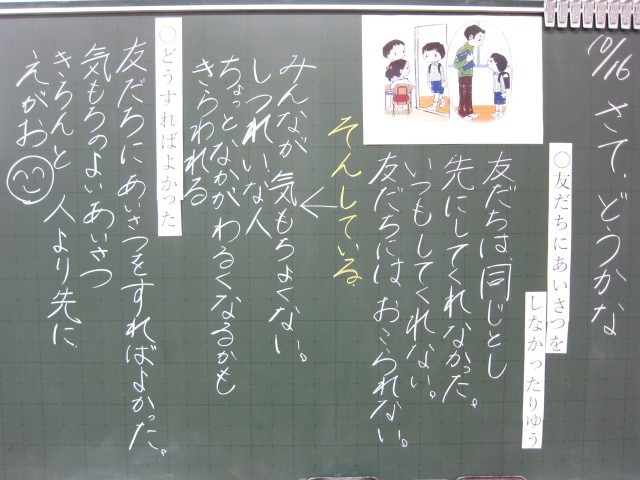 10/16
さて、どうかな
○友だちにあいさつを
しなかったりゆう
友だちは、同じとし
先にしてくれなかった。
いつもしてくれない。
友だちには おこられない。
そんしている
みんなが 気もちよくない。
しつれいな人
ちょっとなかがわるくなるかも
きらわれる
○どうすればよかった
友だちに あいさつをすればよかった。
気もちのよいあいさつ
きちんと 人より先に
えがお